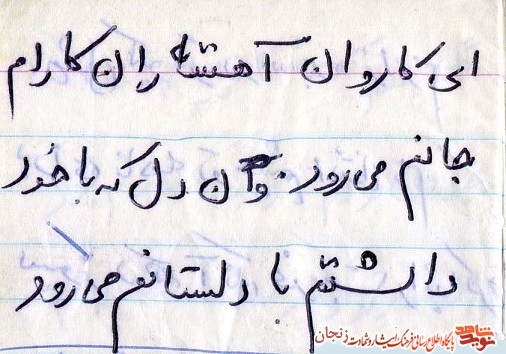 ای کاروان آهسته ران کارام
جانم می رود. وآن دل که با خود
داشتم با دلستانم می رود
نوید شاهد پایگاه اطلاع رسانی فرهنگ ایثار و شهادت زنجان